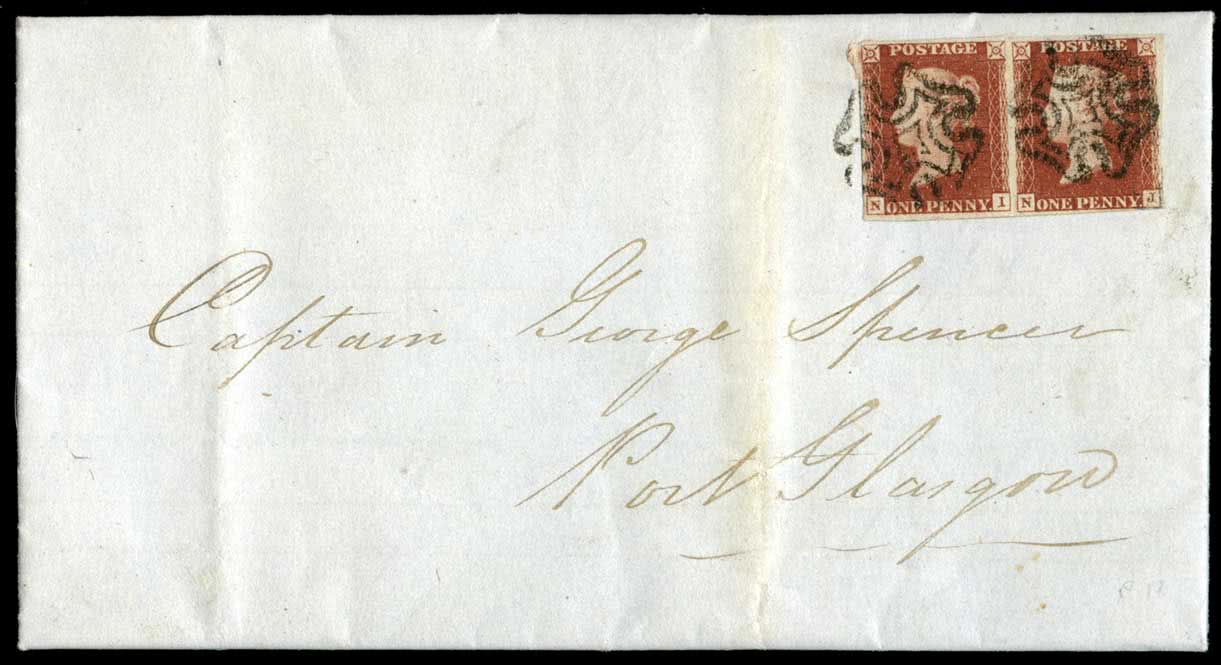 POSTAGE POSTAGE
N ONE PENNY. I N ONE PENNY. J
Captain George Spencer
Port Glasgow